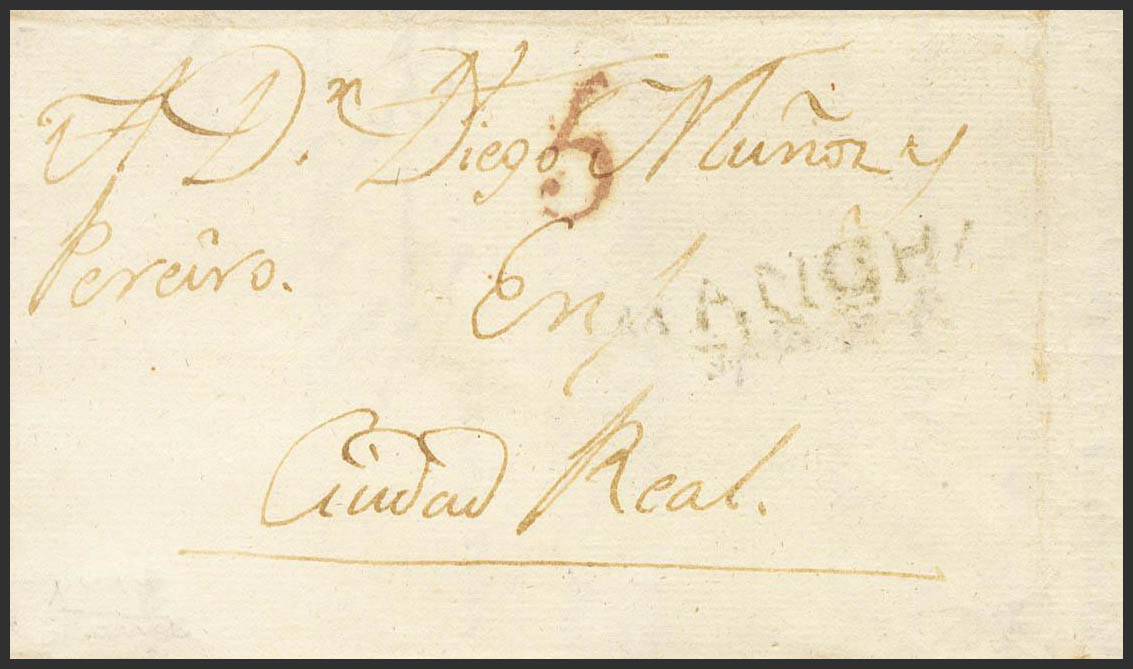 A D.n Diego Muñoz y
5
Pereiro.
En
MANCHA
Ciudad Real.